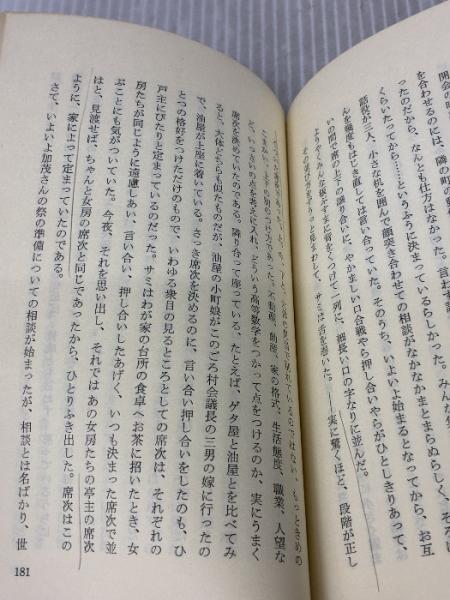 開会の時
を合わせるのには、隣の町の
ったのだから、なんとも仕方はなかった。言わず
くらいたってから……というふうに決まっているらしかった。みんな
話役が三人、小さな机を囲んで顔突き合わせての相談がなかなかまとまらぬらしく、そろ
んを幾度もはじき直しては言い合っていた。そのうち、いよいよ始まるとなってから、お互
いの間で席の上下の譲り合いに、やかましい口合戦やら押し合いやらがひとしきりあって、
ようやくみんな板ぶすまに背をくっつけて一列に、細長いロの字なりに並んだ。
サミは舌を巻いた。――実に驚くほど、段階が正し
どといういっさいの点を考えに入れ、どういう高等数学をつかって点をつけるのか、実にうまく
席次を決めているのである。隣り合って座っている、たとえば、ゲタ屋と油屋とを比べてみ
ると、大体どちらも似たものだが、油屋の小町娘がこのごろ村会議長の三男の嫁に行ったの
で、油屋が上座に着いている。さっき席次を決めるのに、言い合い押し合いをしたのも、ひ
とつの格好をつけただけのもので、いわゆる衆目の見るところとしての席次は、それぞれの
戸主にぴたりと定まっているのだった。サミはわが家の台所の食卓へお茶に招いたとき、女
房たちが同じように遠慮しあい、言い合い、押し合いしたあげく、いつも決まった席次で並
ぶことにも気がついていた。今夜、それを思い出し、それではあの女房たちの亭主の席次
はと、見渡せば、ちゃんと女房の席次と同じであったから、ひとりふき出した。席次はこの
ように、家によって定まっていたのである。
さて、いよいよ加茂さんの祭の準備についての相談が始まったが、相談とは名ばかり、世
181